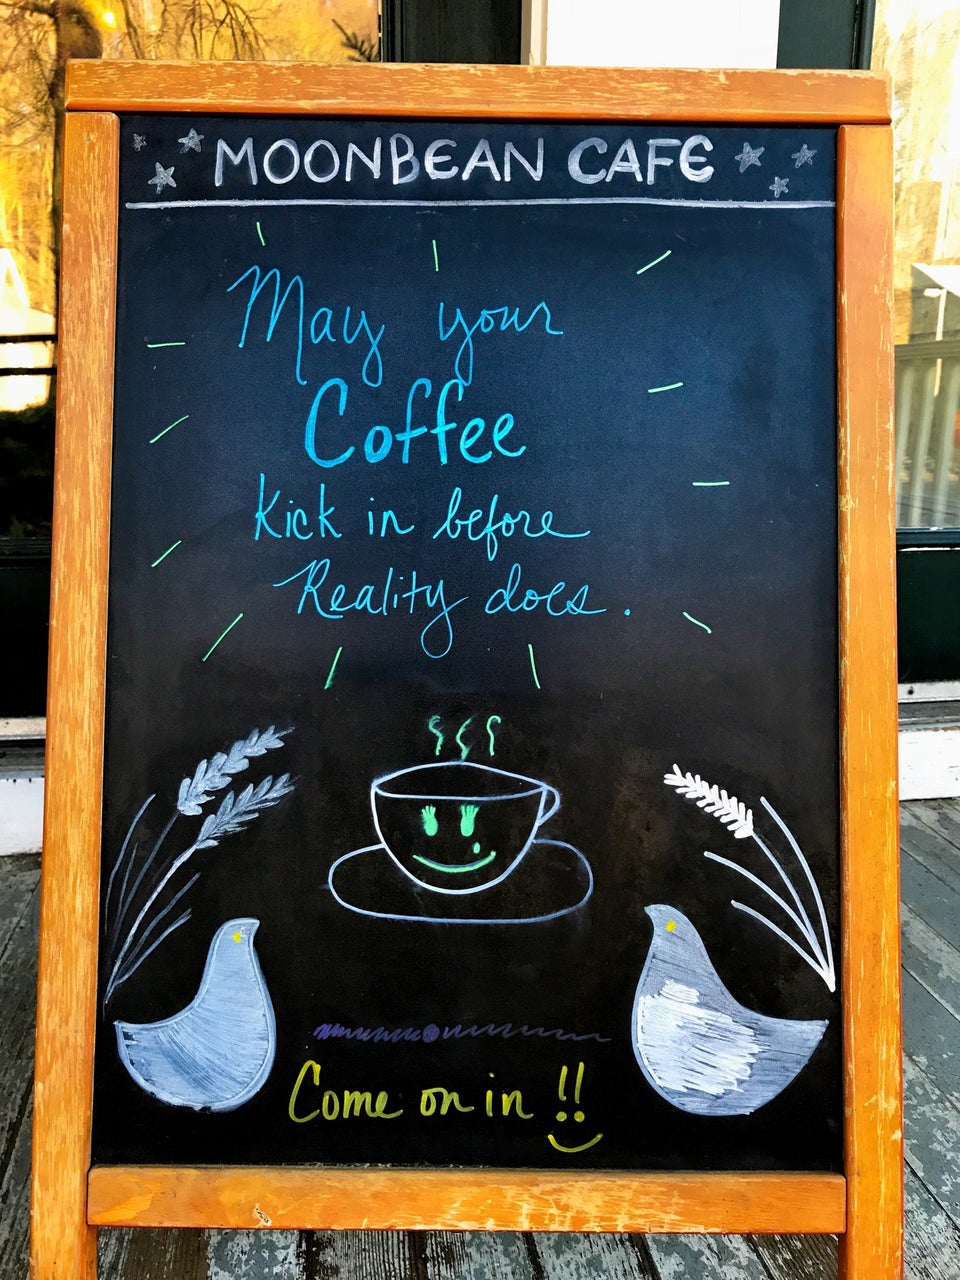 MOONBEAN CAFE
May your
Coffee
Kick in before
Reality does.
Come on in !!